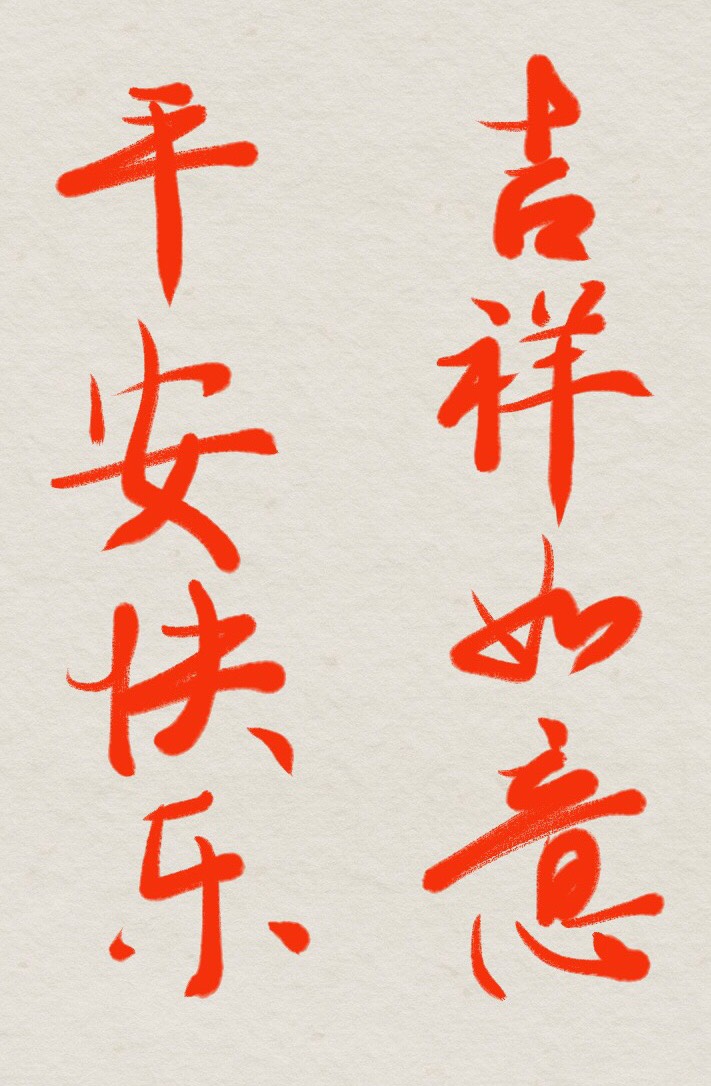 吉祥如意
平安快乐